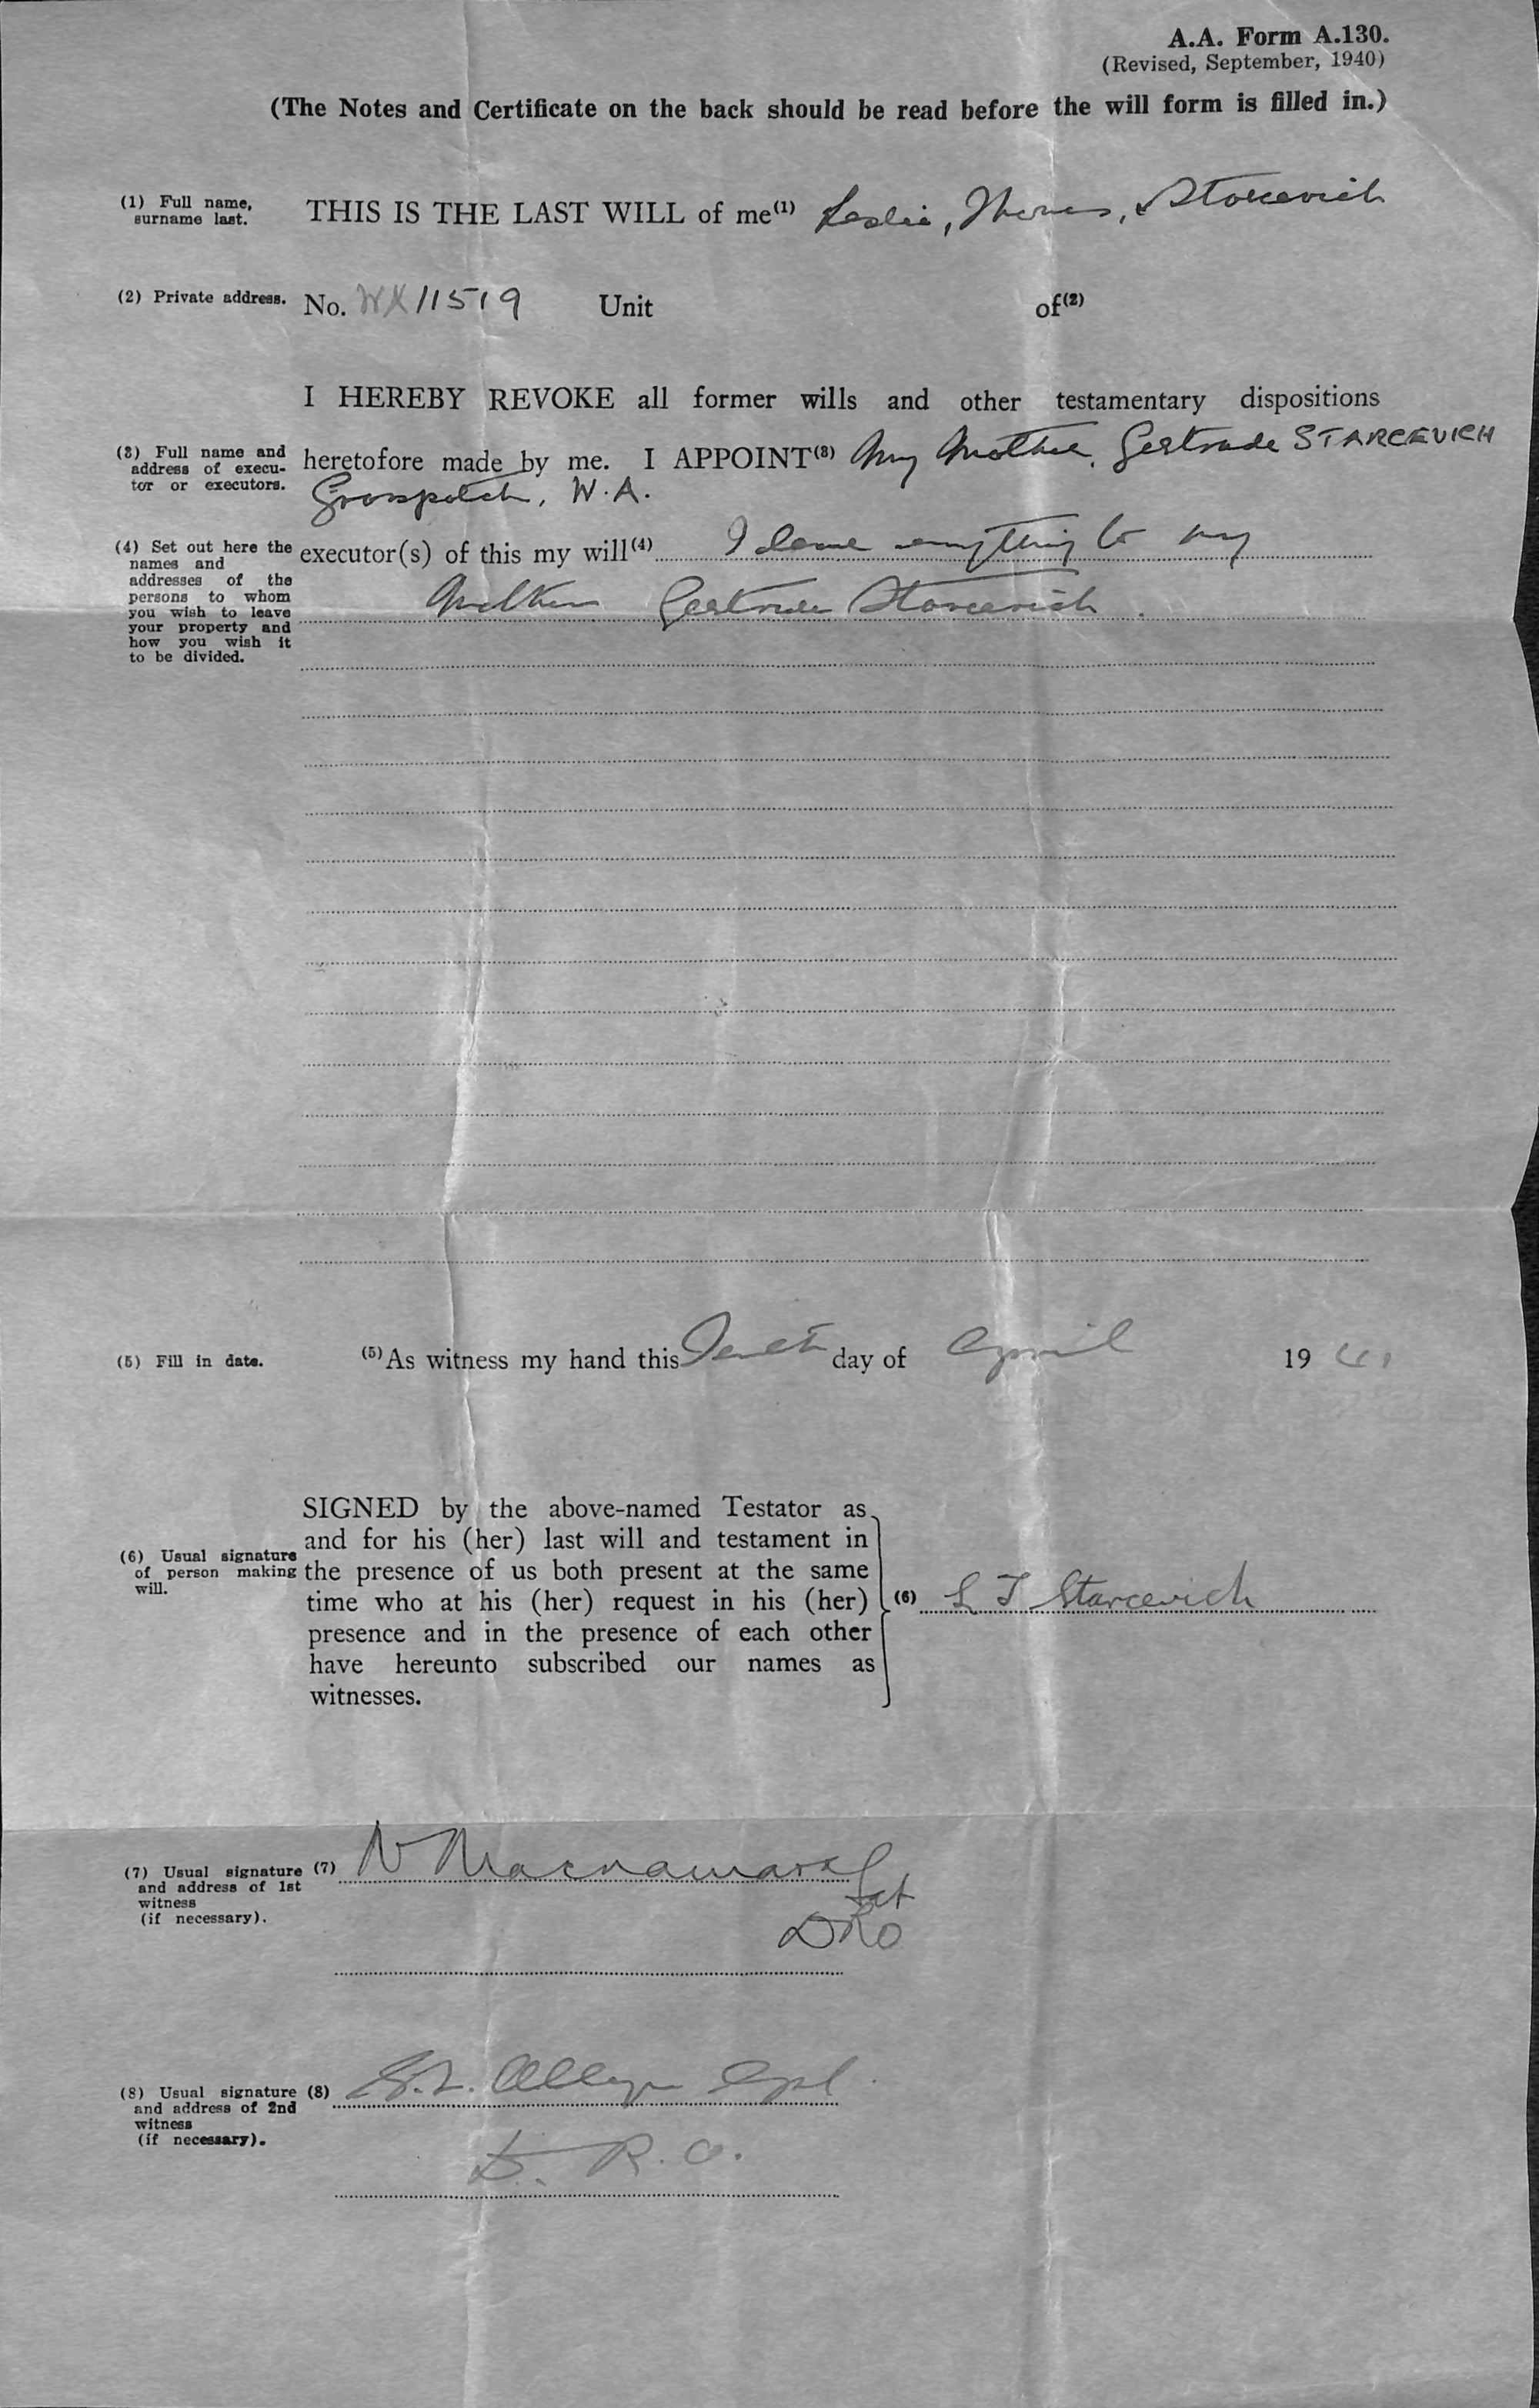 A.A. Form A.130.
(Revised, September, 1940)
(The Notes and Certificate on the back should be read before the will form is filled in.)
(1) Full name, surname last.
THIS IS THE LAST WILL of me(1) Leslie, Thomas, Starcevich
(2) Private address.
No. WX11519 Unit of(2)
I HEREBY REVOKE all former wills and other testamentary dispositions
(3) Full name and address of executor or executors.
heretofore made by me. I APPOINT(3) My Mother, Gertrude STARCEVICH
Grasspatch, W.A.
(4) Set out here the names and addresses of the persons to whom you wish to leave your property and how you wish it to be divided.
executor(s) of this my will(4) I leave everything to my
Mother Gertrude Starcevich.
(5) Fill in date.
(5) As witness my hand this Tenth day of April 1941
SIGNED by the above-named Testator as
and for his (her) last will and testament in
(6) Usual signature of person making will.
the presence of us both present at the same
time who at his (her) request in his (her) (6) L T Starcevich
presence and in the presence of each other
have hereunto subscribed our names as
witnesses.
(7) Usual signature and address of 1st witness (if necessary).
(7) N Macnamara Sgt
DRO
(8) Usual signature and address of 2nd witness (if necessary).
(8) Cpl.
D.R.O.